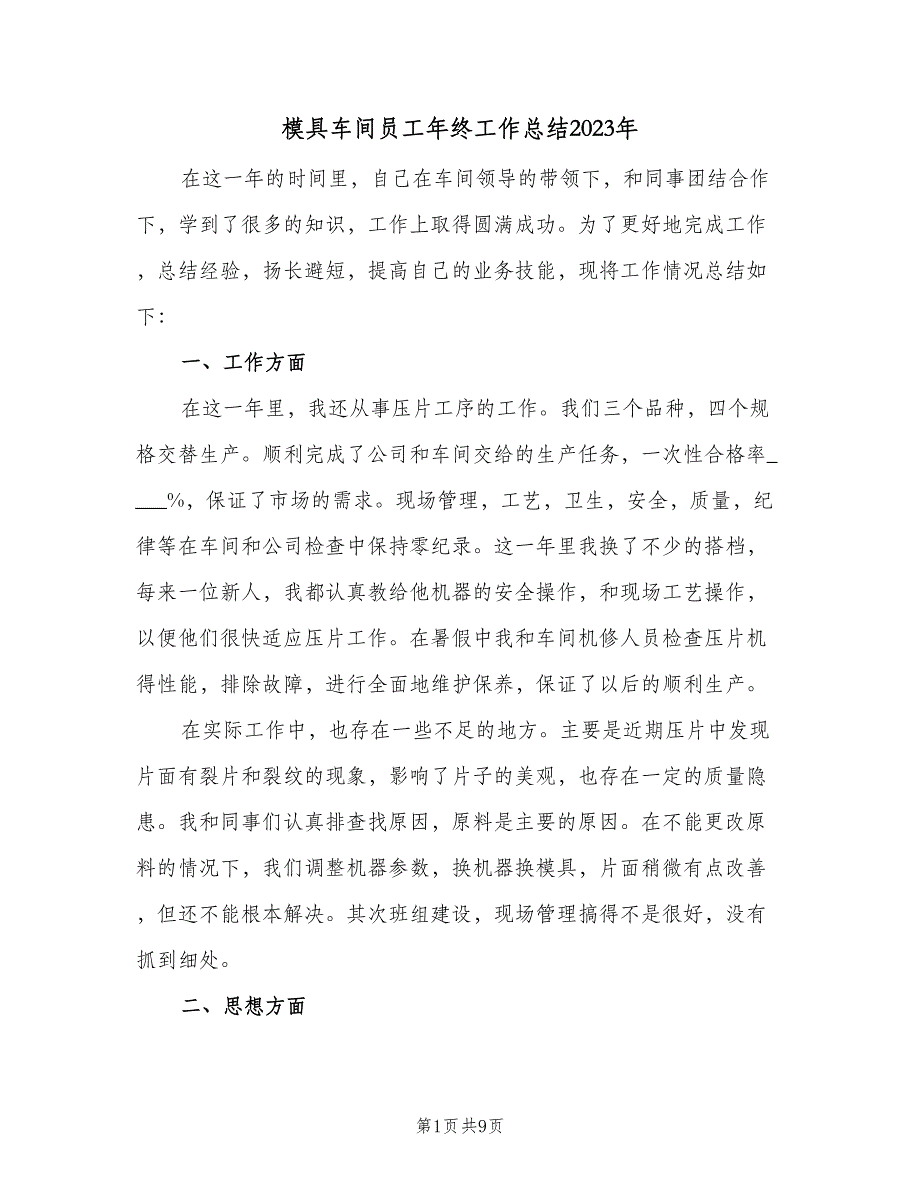 模具车间员工年终工作总结2023年
在这一年的时间里，自己在车间领导的带领下，和同事团结合作
下，学到了很多的知识，工作上取得圆满成功。为了更好地完成工作
，总结经验，扬长避短，提高自己的业务技能，现将工作情况总结如
下：
一、工作方面
在这一年里，我还从事压片工序的工作。我们三个品种，四个规
格交替生产。顺利完成了公司和车间交给的生产任务，一次性合格率_
___%，保证了市场的需求。现场管理，工艺，卫生，安全，质量，纪
律等在车间和公司检查中保持零纪录。这一年里我换了不少的搭档，
每来一位新人，我都认真教给他机器的安全操作，和现场工艺操作，
以便他们很快适应压片工作。在暑假中我和车间机修人员检查压片机
得性能，排除故障，进行全面地维护保养，保证了以后的顺利生产。
在实际工作中，也存在一些不足的地方。主要是近期压片中发现
片面有裂片和裂纹的现象，影响了片子的美观，也存在一定的质量隐
患。我和同事们认真排查找原因，原料是主要的原因。在不能更改原
料的情况下，我们调整机器参数，换机器换模具，片面稍微有点改善
，但还不能根本解决。其次班组建设，现场管理搞得不是很好，没有
抓到细处。
二、思想方面
第1页 共9页